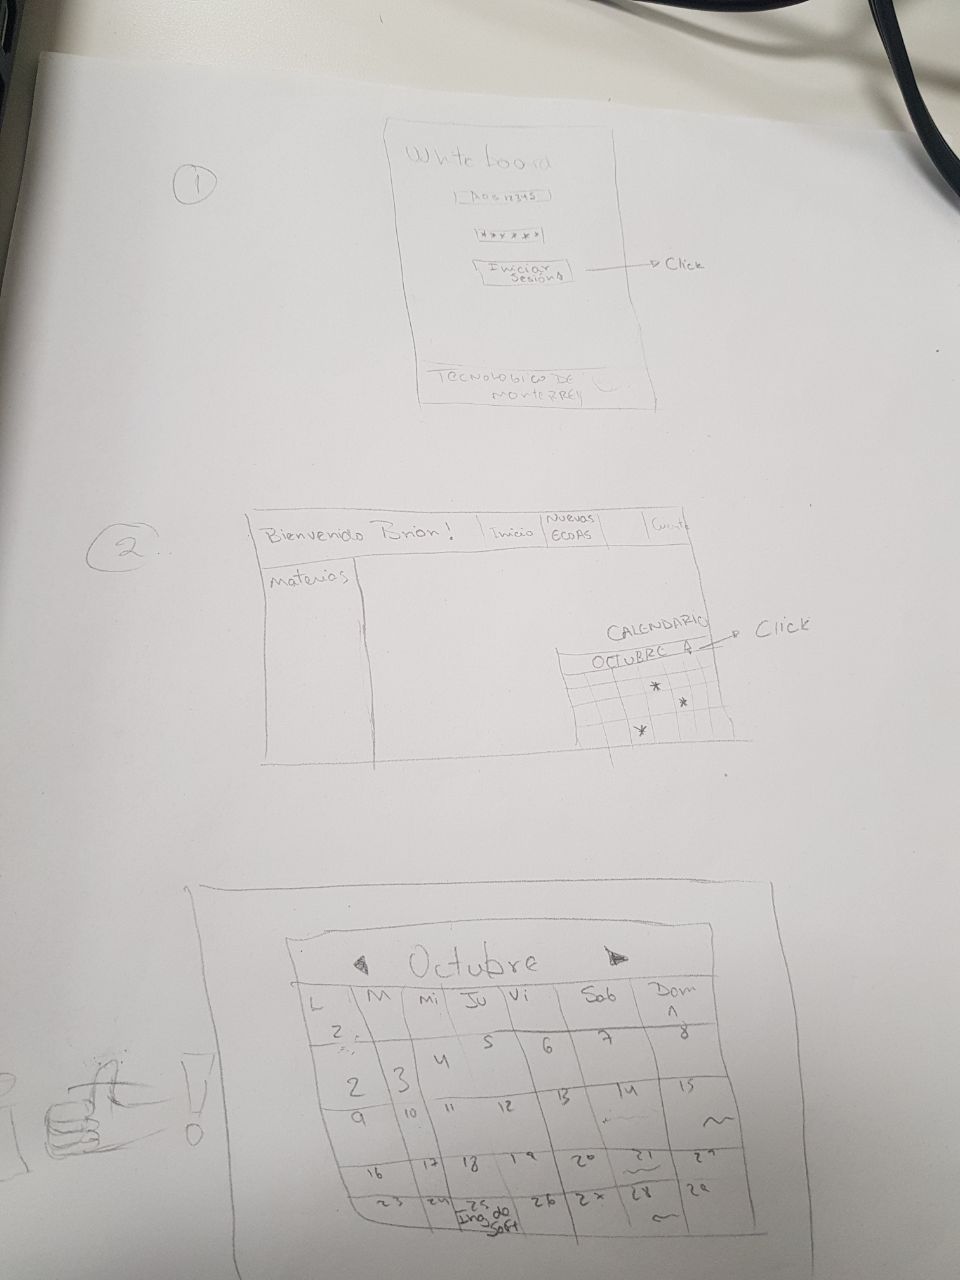 1
White board
A0512345
******
Iniciar
Sesión
Click
TECNOLOGICO DE
MONTERREY
2
Bienvenido Brian!
Inicio
NUEVAS
ECOAS
Materias
CALENDARIO
OCTUBRE
Click
*
*
*
Octubre
L M Mi Ju Vi Sab Dom
2
1
2 3 4 5 6 7 8
9 10 11 12 13 14 15
16 17 18 19 20 21 22
23 24 25 26 27 28 29
Ing de
Soft
!